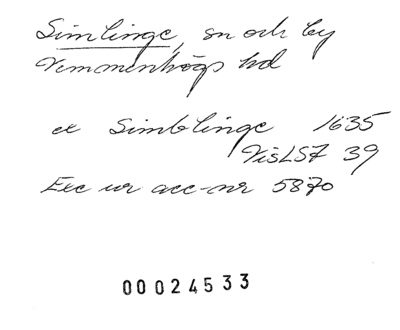 Simlinge, sn och by
Vemmenhögs hd
ex Simblinge 1635
VisLSF 39
Exc ur acc-nr 5870
00024533